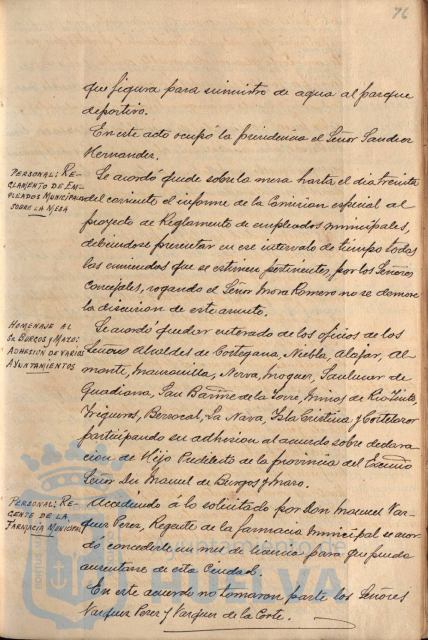 76
que figura para suministro de agua al parque
deportivo.
En este acto ocupó la presidencia el Señor Sanchez
Hernandez.
PERSONAL: RE-
GLAMENTO DE EM-
PLEADOS MUNICIPALES
SOBRE LA MESA
Se acordó quede sobre la mesa hasta el dia treinta
del corriente el informe de la Comision especial al
proyecto de Reglamento de empleados municipales,
debiendose presentar en ese intervalo de tiempo todas
las enmiendas que se estimen pertinentes, por los Señores
Concejales, rogando el Señor Mora Romero no se demore
la discusion de este asunto.
HOMENAJE AL
SR BURGOS Y MAZO:
ADHESION DE VARIOS
AYUNTAMIENTOS
Se acordó quedar enterado de los oficios de los
Señores Alcaldes de Cortegana, Niebla, Alajar, Al-
monte, Manzanilla, Nerva, Moguer, Sanlucar de
Guadiana, San Bartmé de la Torre, Minas de Riotinto,
Trigueros, Berrocal, La Nava, Isla Cristina y Cortelazor
participando su adhesion al acuerdo sobre declara-
cion de Hijo Predilecto de la provincia del Excmo
Señor Dn Manuel de Burgos y Mazo.
PERSONAL: RE-
GENTE DE LA
FARMACIA MUNICIPAL
Accediendo á lo solicitado por Don Manuel Vaz-
quez Perez, Regente de la farmacia Municipal se acor-
dó concederle un mes de licencia para que pueda
ausentarse de esta Ciudad.
En este acuerdo no tomaron parte los Señores
Vazquez Perez y Vazquez de la Corte.
HUELVA